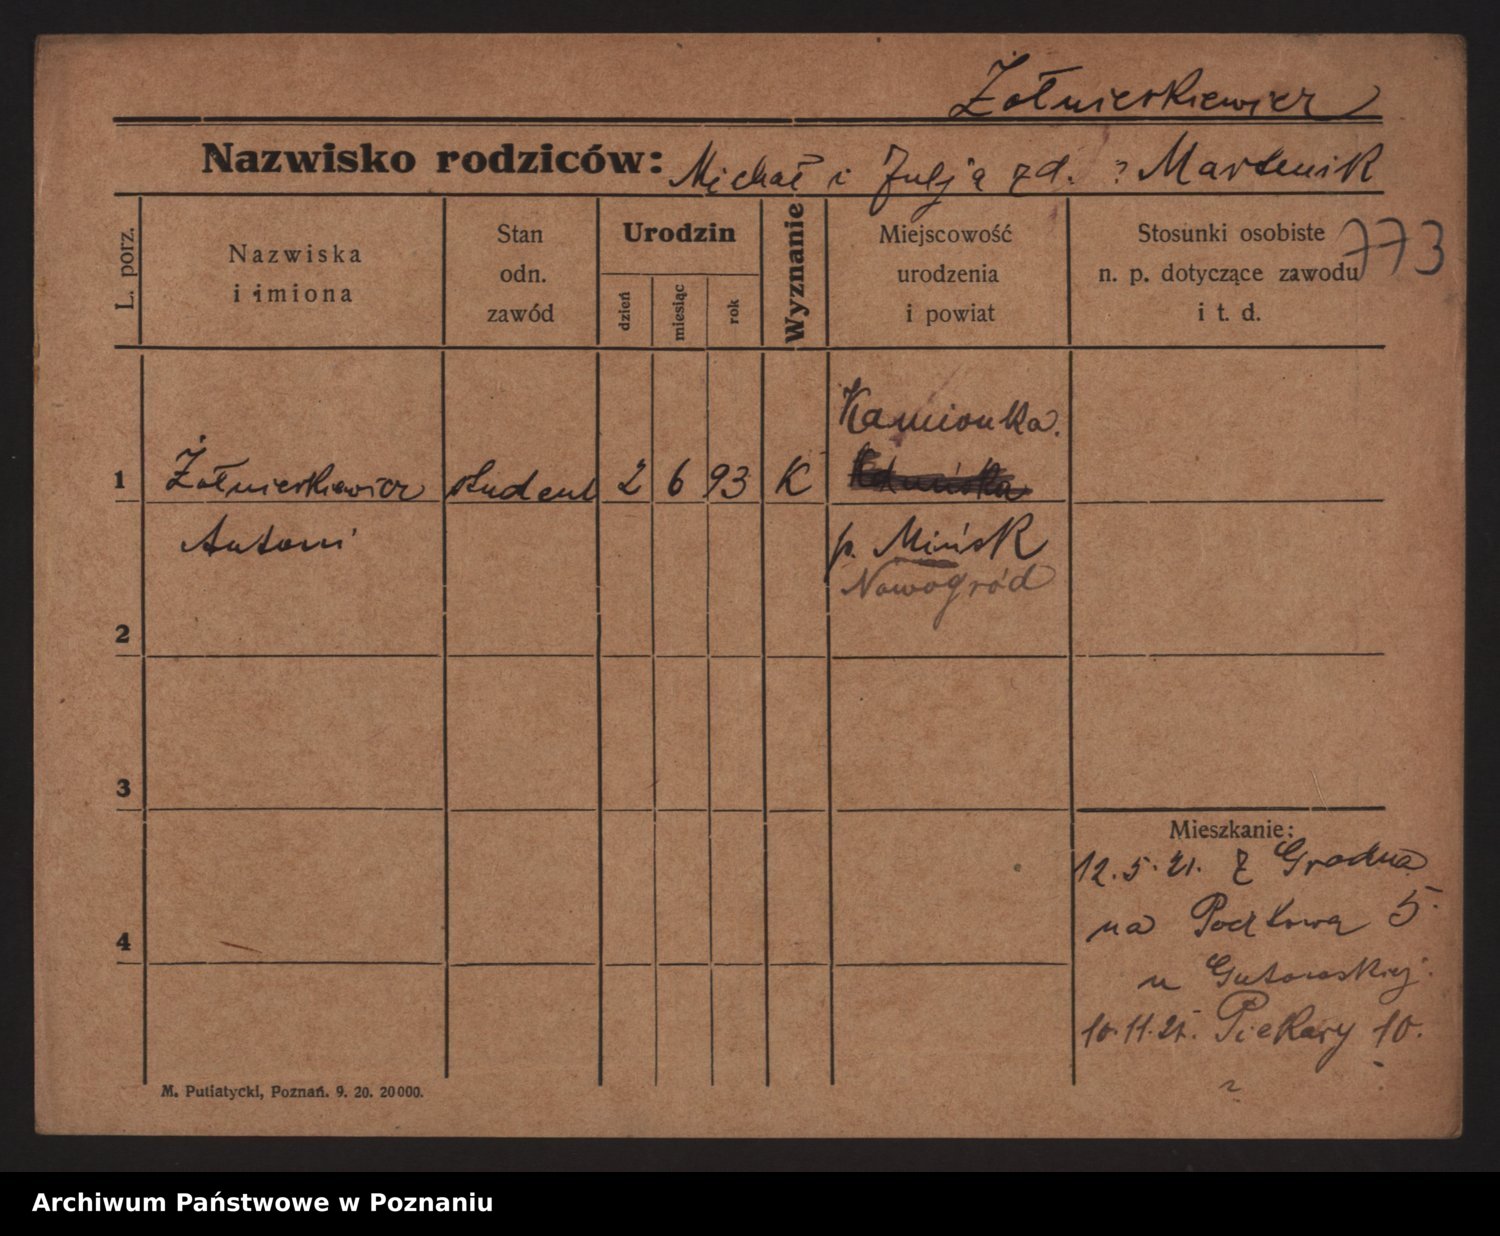 Żołnierkiewicz
Nazwisko rodziców: Michał i Julja zd. ? Martenik
L. porz.
Nazwiska
i imiona
Stan
odn.
zawód
Urodzin
dzień
miesiąc
rok
Wyznanie
Miejscowość
urodzenia
i powiat
Stosunki osobiste
n. p. dotyczące zawodu
i t. d.
773
Kamionka.
1 Żołnierkiewicz student 2 6 93 K
Antoni p. Mińsk
Nowogród
2
3
4
Mieszkanie:
12.5.21. z Grodna
na Pocztowa 5.
u Gutowskiej.
10.11.21. Piekary 10.
?
M. Putiatycki, Poznań. 9. 20. 20000.
Archiwum Państwowe w Poznaniu